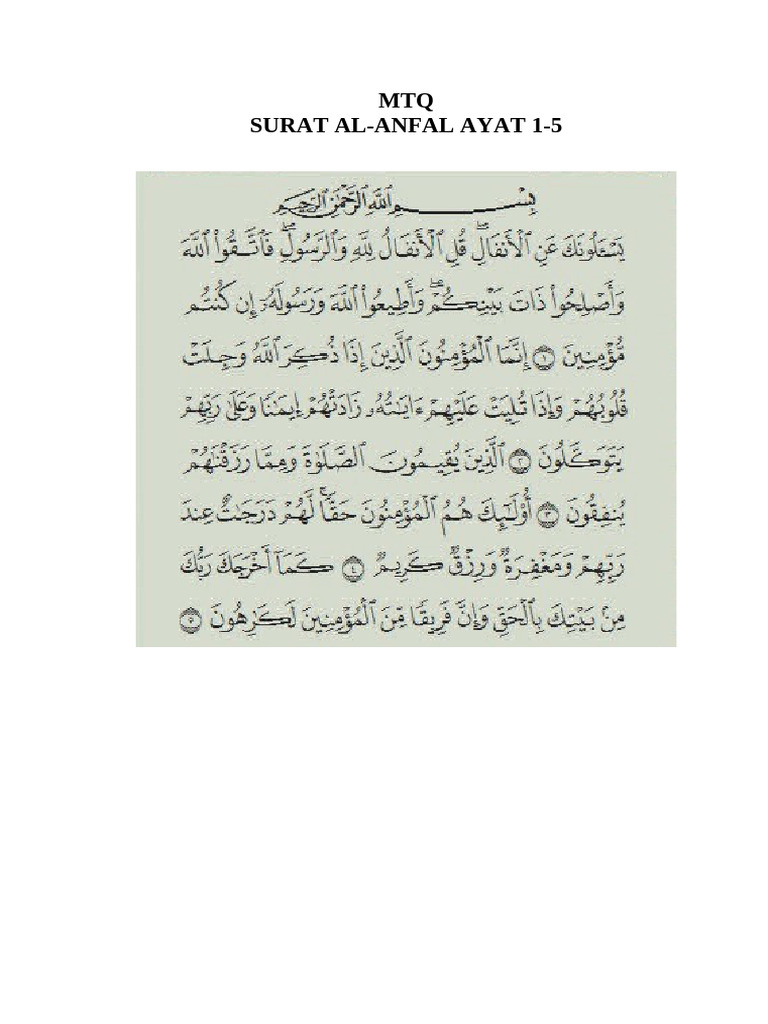 MTQ
SURAT AL-ANFAL AYAT 1-5
بِسْمِ ٱللَّهِ ٱلرَّحْمَٰنِ ٱلرَّحِيمِ
يَسْـَٔلُونَكَ عَنِ ٱلْأَنفَالِ ۖ قُلِ ٱلْأَنفَالُ لِلَّهِ وَٱلرَّسُولِ ۖ فَٱتَّقُوا۟ ٱللَّهَ
وَأَصْلِحُوا۟ ذَاتَ بَيْنِكُمْ ۖ وَأَطِيعُوا۟ ٱللَّهَ وَرَسُولَهُۥٓ إِن كُنتُم
مُّؤْمِنِينَ ١ إِنَّمَا ٱلْمُؤْمِنُونَ ٱلَّذِينَ إِذَا ذُكِرَ ٱللَّهُ وَجِلَتْ
قُلُوبُهُمْ وَإِذَا تُلِيَتْ عَلَيْهِمْ ءَايَٰتُهُۥ زَادَتْهُمْ إِيمَٰنًا وَعَلَىٰ رَبِّهِمْ
يَتَوَكَّلُونَ ٢ ٱلَّذِينَ يُقِيمُونَ ٱلصَّلَوٰةَ وَمِمَّا رَزَقْنَٰهُمْ
يُنفِقُونَ ٣ أُو۟لَٰٓئِكَ هُمُ ٱلْمُؤْمِنُونَ حَقًّا ۚ لَّهُمْ دَرَجَٰتٌ عِندَ
رَبِّهِمْ وَمَغْفِرَةٌ وَرِزْقٌ كَرِيمٌ ٤ كَمَآ أَخْرَجَكَ رَبُّكَ
مِنۢ بَيْتِكَ بِٱلْحَقِّ وَإِنَّ فَرِيقًا مِّنَ ٱلْمُؤْمِنِينَ لَكَٰرِهُونَ ٥